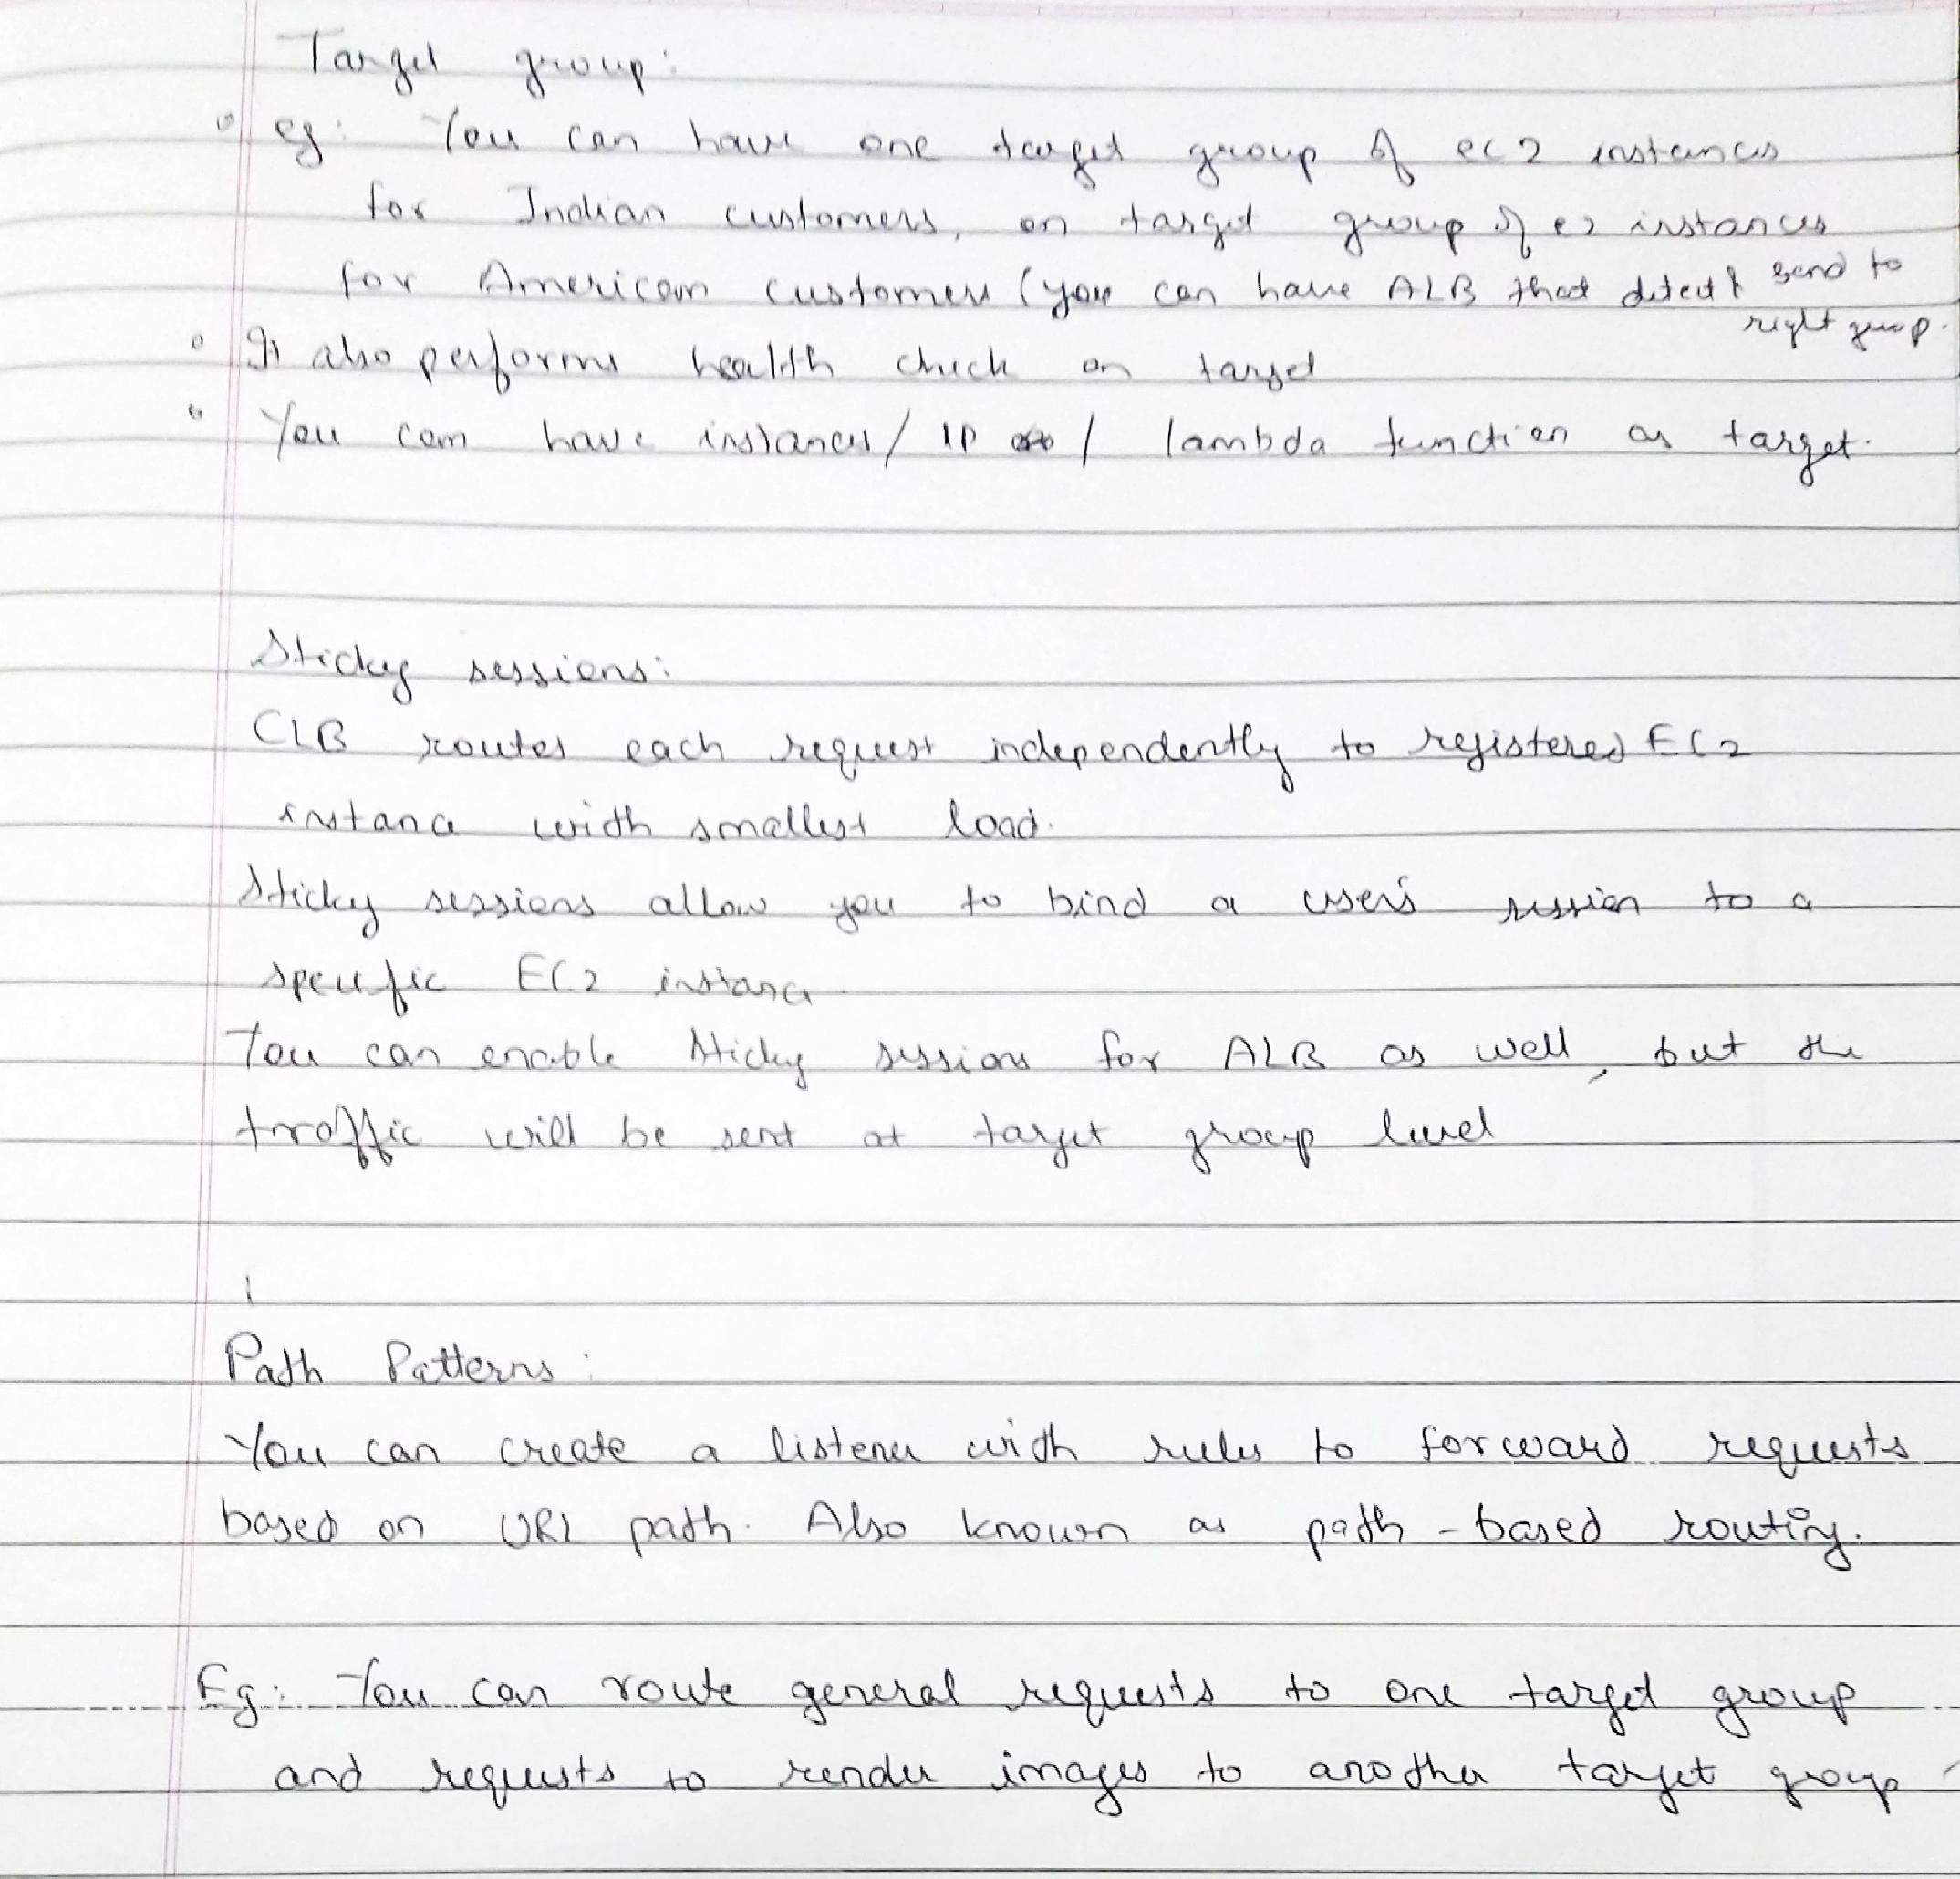 Target group:
eg: You can have one target group of ec2 instances
for Indian customers, on target group of e2 instances
for American customers (you can have ALB that detect & send to
right group.
It also performs health check on target
You can have instances / IP / lambda function as target.
Sticky sessions:
CLB routes each request independently to registered EC2
instance with smallest load.
Sticky sessions allow you to bind a user's session to a
specific EC2 instance
You can enable sticky sessions for ALB as well, but the
traffic will be sent at target group level
Path Patterns:
You can create a listener with rules to forward requests
based on URL path. Also known as path-based routing.
Eg: You can route general requests to one target group
and requests to render images to another target group